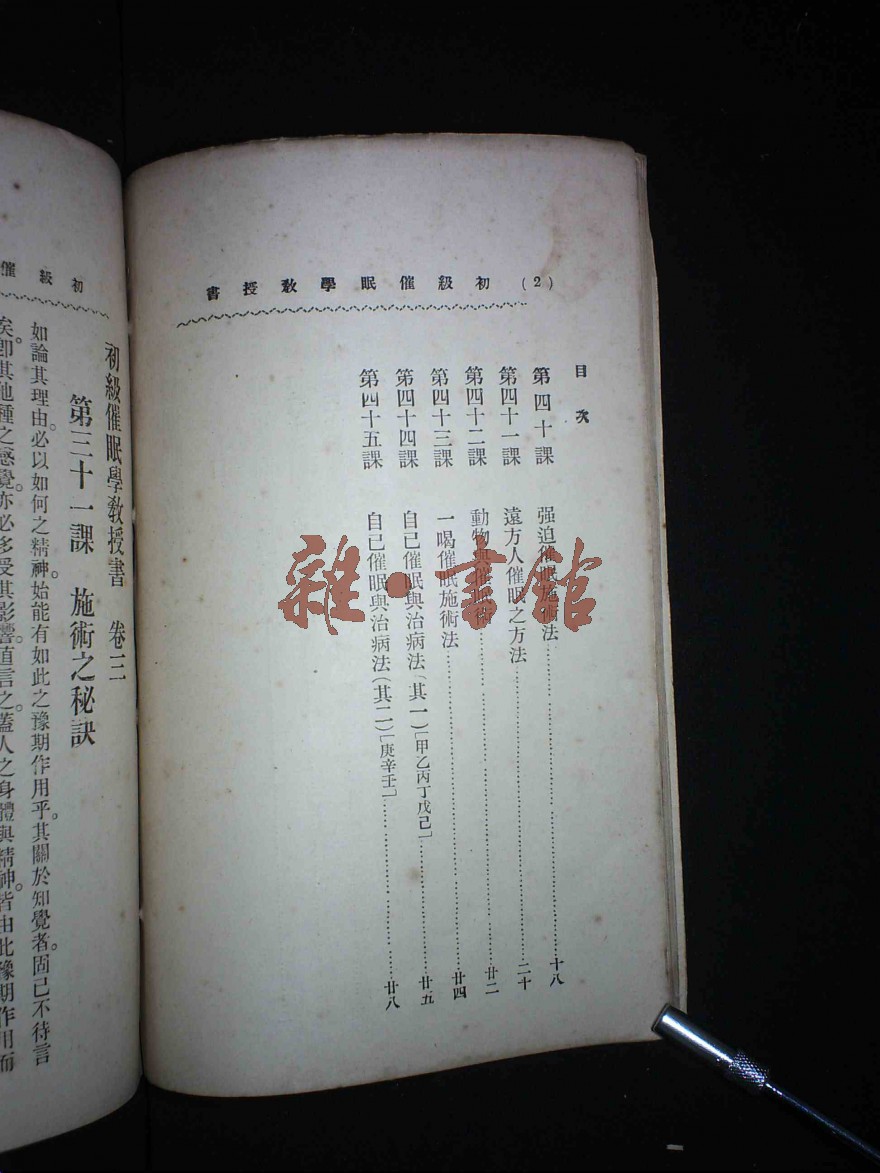 (2) 初級催眠學教授書
目次
第四十課 强迫催眠施術法 十八
第四十一課 遠方人催眠之方法 二十
第四十二課 動物與催眠術 廿二
第四十三課 一喝催眠施術法 廿四
第四十四課 自己催眠與治病法(其一)[甲乙丙丁戊己] 廿五
第四十五課 自己催眠與治病法(其二)[庚辛壬] 廿八
初級催
初級催眠學教授書 卷三
第三十一課 施術之秘訣
如論其理由。必以如何之精神。始能有如此之豫期作用乎。其關於知覺者。固已不待言
矣。卽其他種之感覺。亦必多受其影響。質言之。蓋人之身體與精神。皆由此豫期作用而
雜·書館